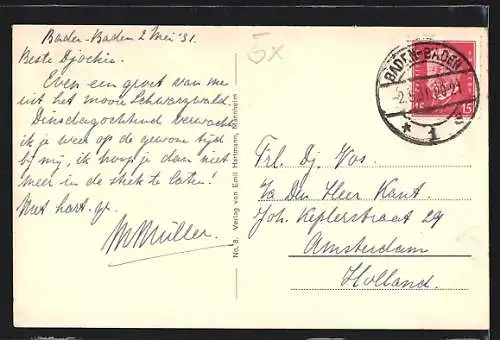 Baden-Baden 2 Mei '31.
Beste Djockie.
Even een groet van me
uit het mooie Schwarzwald.
Dinsdagochtend verwacht
ik je weer op de gewone tijd
bij mij, ik hoop je dan niet
meer in de steek te laten!
Met hart. gr.
MMüller.
5x
No. 3. Verlag von Emil Hartmann, Mannheim
BADEN-BADEN
-2.5.31.20-21
* 1 c
15 15
Frl. Dj. Vos.
p/a Den Heer Kant.
Joh. Keplerstraat 29
Amsterdam
Holland.